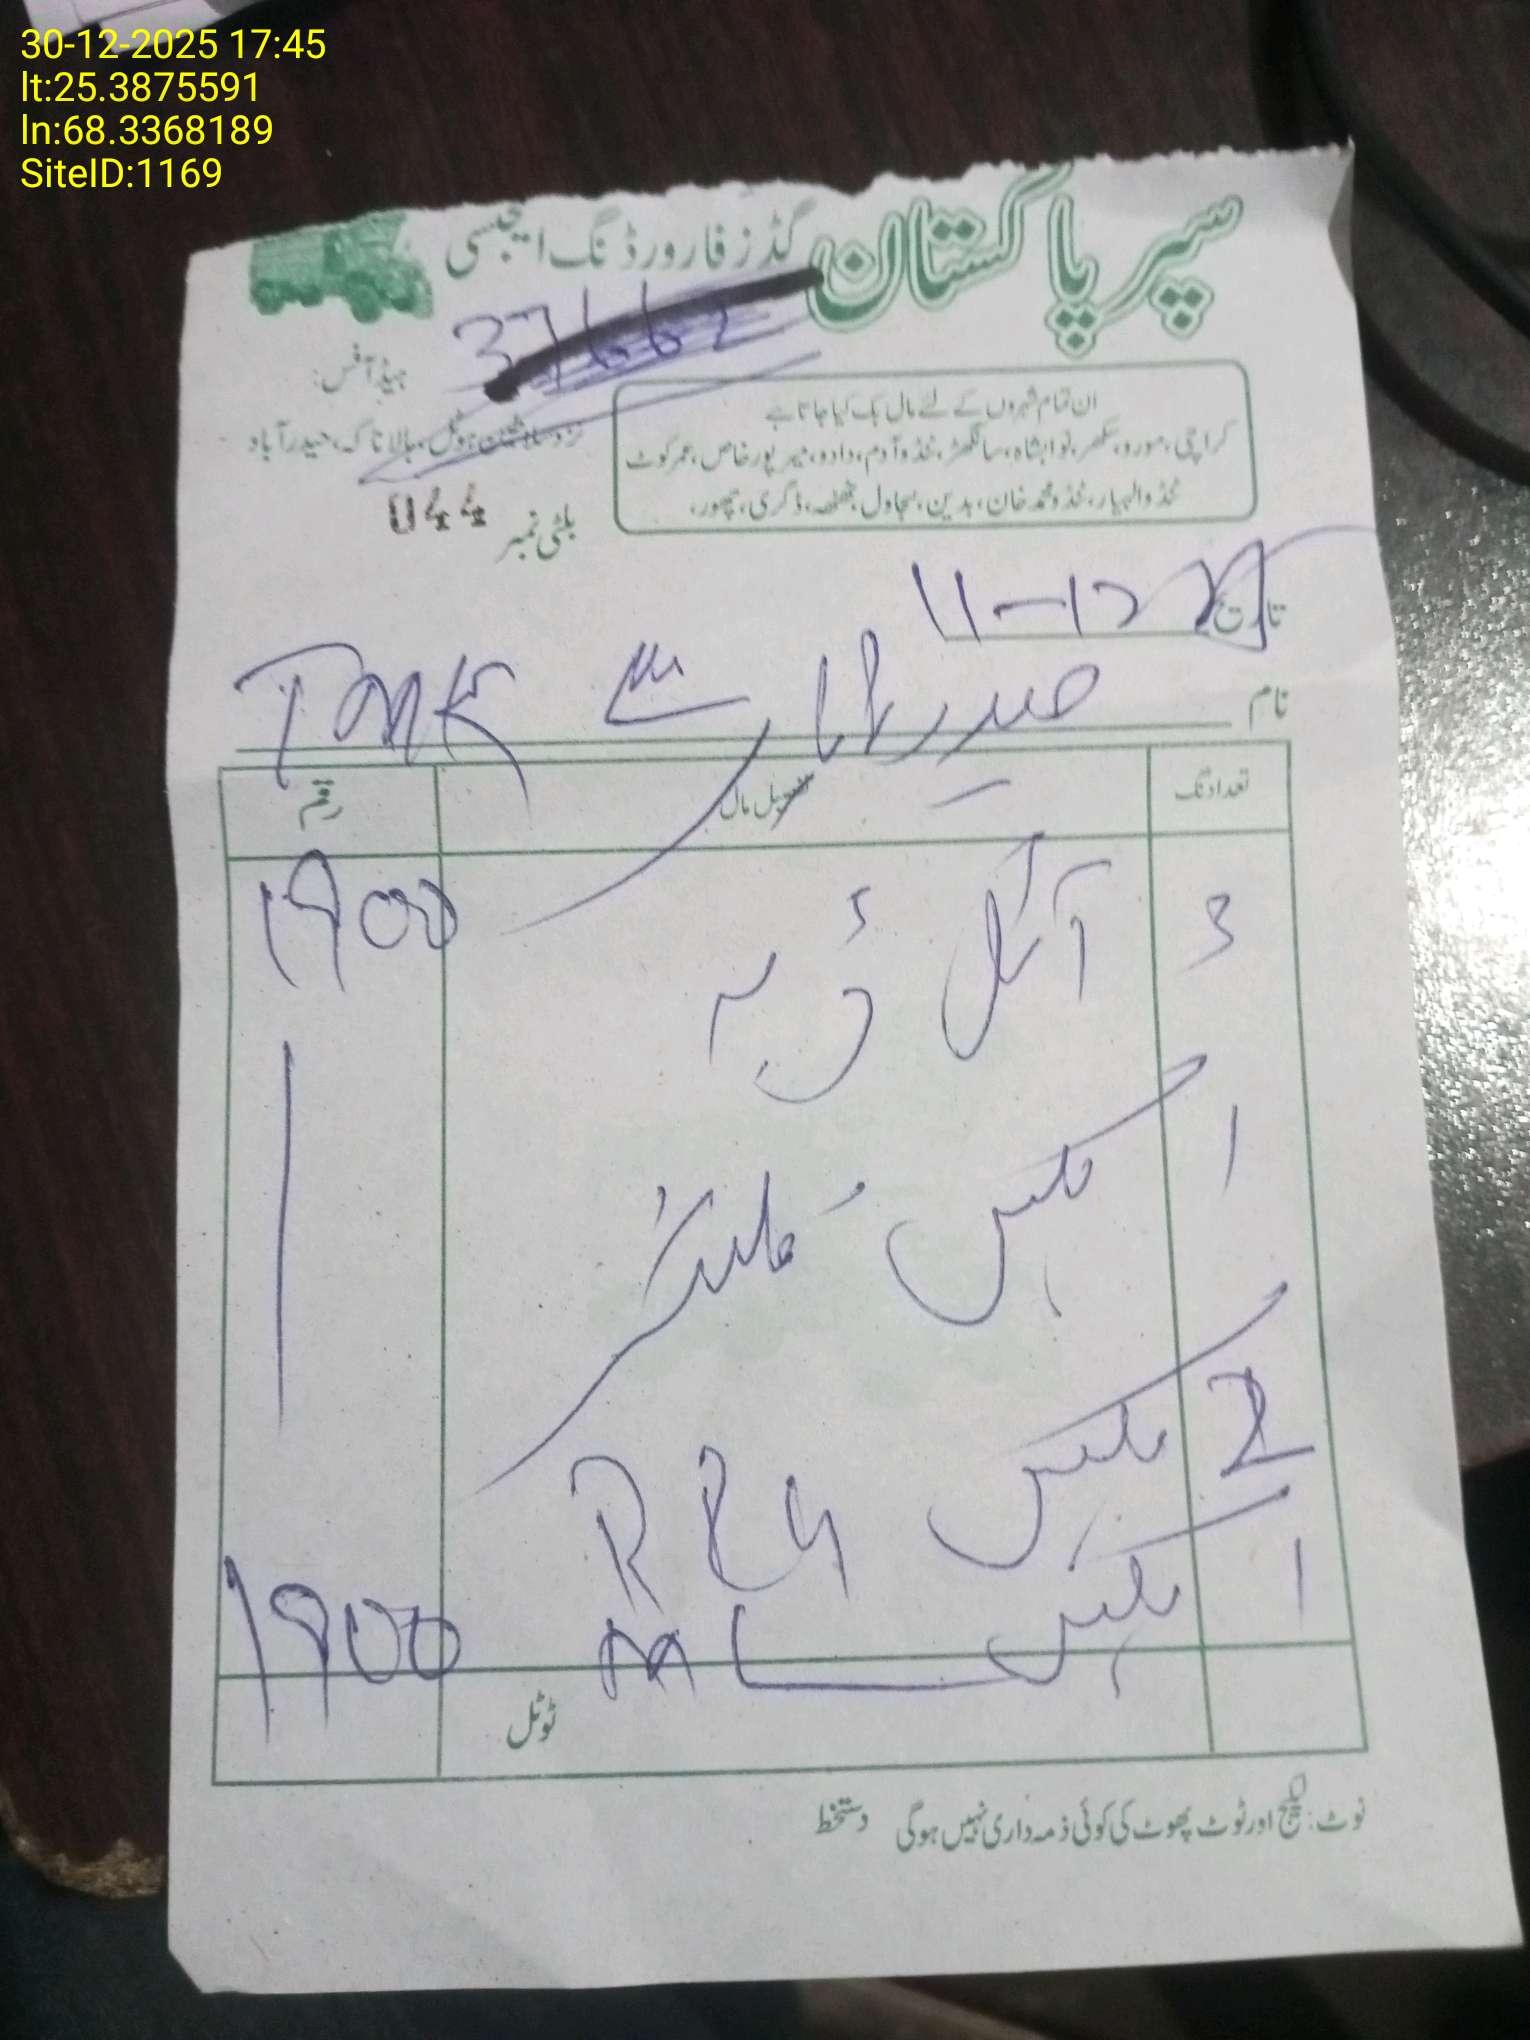 30-12-2025 17:45
lt:25.3875591
ln:68.3368189
SiteID:1169
سپر پاکستان گڈز فارورڈنگ ایجنسی
ہیڈ آفس:
ہوٹل، ہالا ناکہ، حیدرآباد
ان تمام شہروں کے لئے مال بک کیا جاتا ہے
کراچی، مورو، سکھر، نوابشاہ، سانگھڑ، ٹنڈو آدم، دادو، میرپور خاص، عمر کوٹ
ٹنڈو الہیار، ٹنڈو محمد خان، بدین، سجاول، ٹھٹھہ، ڈگری، چھور،
بلٹی نمبر 044
تاریخ 11-12
نام حیدرآباد TMK
تعداد نگ تفصیل مال رقم
3 آئل 1900
1 بکس فلیٹر
2 بکس
1 بکس 1900
ٹوٹل
نوٹ: لیکج اور ٹوٹ پھوٹ کی کوئی ذمہ داری نہیں ہوگی دستخط